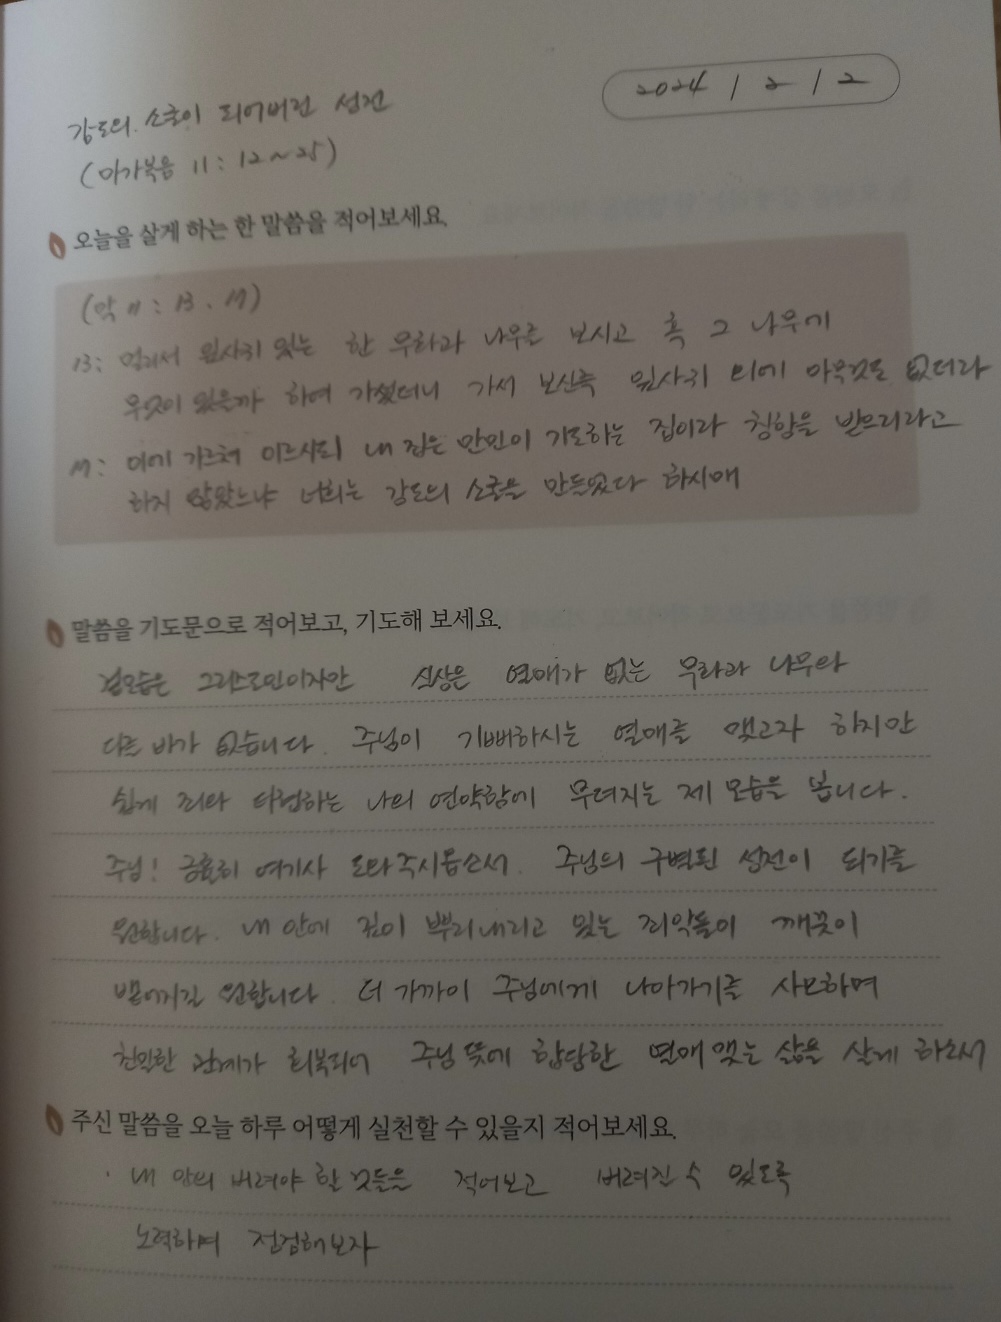 2024 / 2 / 2
강도의 소굴이 되어버린 성전
(마가복음 11 : 12~25)
오늘을 살게 하는 한 말씀을 적어보세요.
(막 11 : 13, 17)
13: 멀리서 잎사귀 있는 한 무화과 나무를 보시고 혹 그 나무에
무엇이 있을까 하여 가셨더니 가서 보신즉 잎사귀 외에 아무것도 없더라
17: 이에 가르쳐 이르시되 내 집은 만민이 기도하는 집이라 칭함을 받으리라고
하지 않았느냐 너희는 강도의 소굴을 만들었다 하시매
말씀을 기도문으로 적어보고, 기도해 보세요.
겉모습은 그리스도인이지만 실상은 열매가 없는 무화과 나무와
다른 바가 없습니다. 주님이 기뻐하시는 열매를 맺고자 하지만
쉽게 죄와 타협하는 나의 연약함에 무너지는 제 모습을 봅니다.
주님! 긍휼히 여기사 도와주시옵소서. 주님의 구별된 성전이 되기를
원합니다. 내 안에 깊이 뿌리내리고 있는 죄악들이 깨끗이
뽑어지길 원합니다. 더 가까이 주님에게 나아가기를 사모하며
친밀한 관계가 회복되어 주님 뜻에 합당한 열매 맺는 삶을 살게 하소서
주신 말씀을 오늘 하루 어떻게 실천할 수 있을지 적어보세요.
· 내 안의 버려야 할 것들을 적어보고 버려질 수 있도록
노력하며 점검해보자